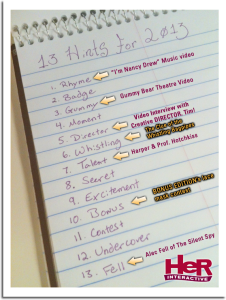 13 Hints for 2013
1. Rhyme "I'm Nancy Drew" Music video
2. Badge
3. Gummy Gummy Bear Theatre Video
4. Moment
5. Director Video Interview with Creative DIRECTOR, Tim!
6. Whistling The Clue of the Whistling Bagpipes
7. Talent Harper & Prof. Hotchkiss
8. Secret
9. Excitement
10. Bonus BONUS EDITION's face mask contest
11. Contest
12. Undercover
13. Fell Alec Fell of The Silent Spy
HeR
INTERACTIVE